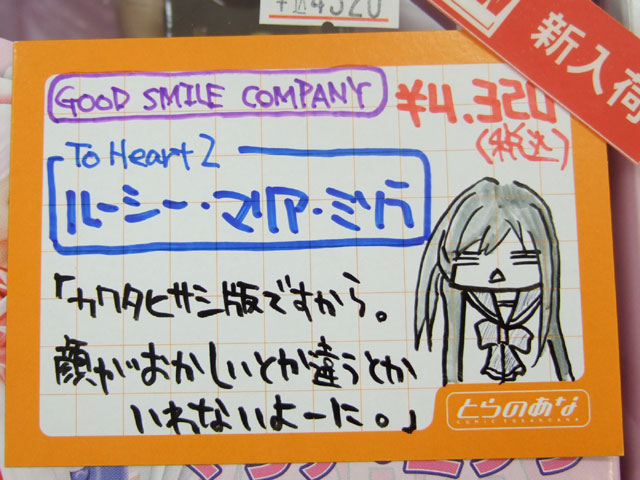 ¥4320
新入荷
GOOD SMILE COMPANY
¥4.320
(税込)
To Heart 2
ルーシー・マリア・ミソラ
「カワタヒサシ版ですから。
顔がおかしいとか違うとか
いわないよーに。」
とらのあな
COMIC TORANOANA